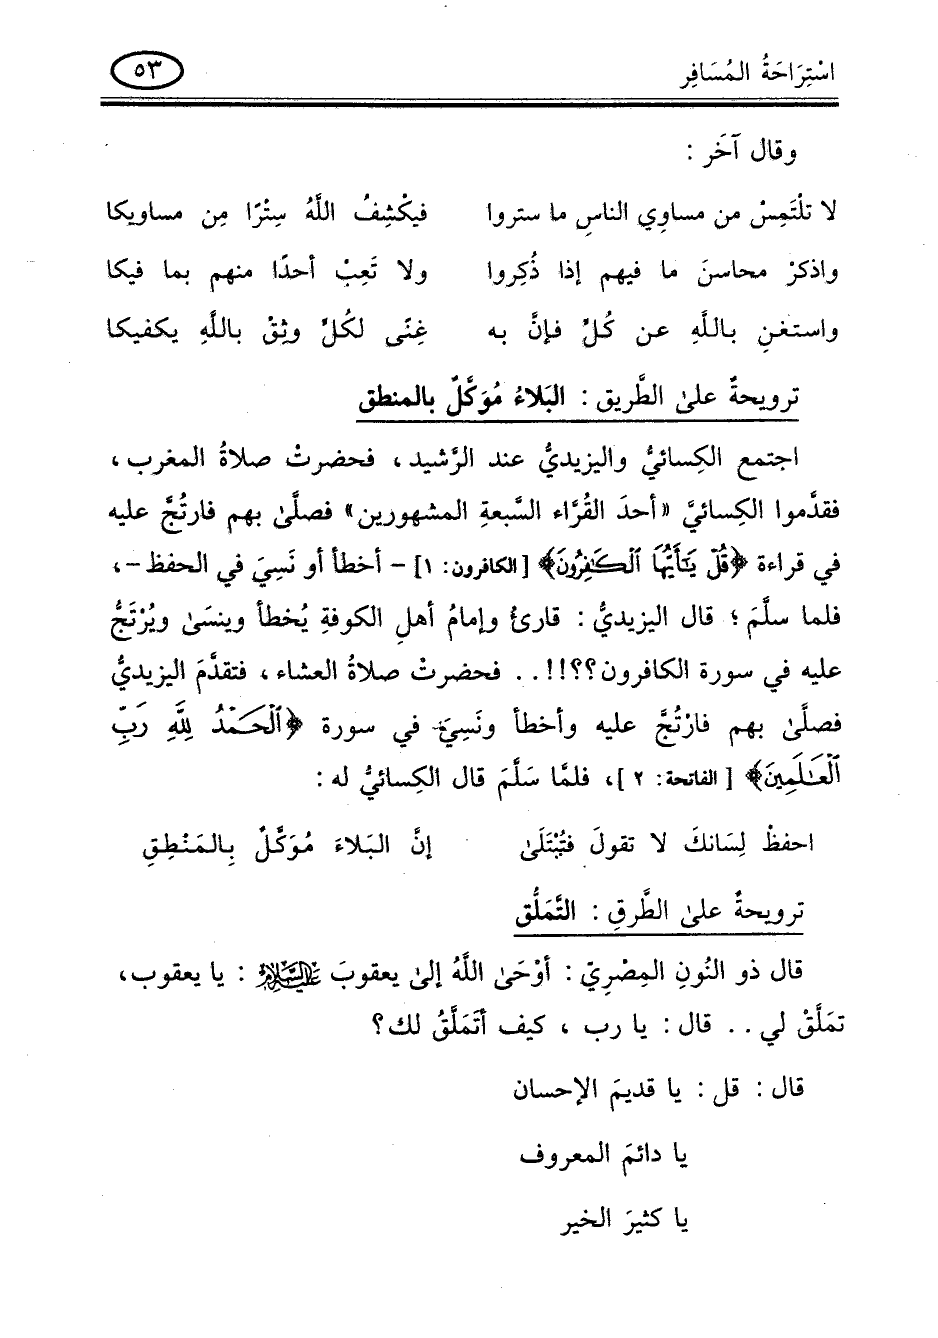 اسْتِرَاحَةُ المُسَافِرِ ٥٣
وقال آخَر :
لا تلْتَمِسْ من مساوِي الناسِ ما ستروا فيكْشِفُ اللَّهُ سِتْرًا مِن مساويكا
واذكرْ محاسنَ ما فيهم إذا ذُكِروا ولا تَعِبْ أحدًا منهم بما فيكا
واستغنِ باللَّهِ عن كُلٍّ فإنَّ به غِنًى لكُلِّ وثِقْ باللَّهِ يكفيكا
ترويحةٌ علىٰ الطَّريق : البَلاءُ مُوَكَّلٌ بالمنطق
اجتمع الكِسائيُّ واليزيديُّ عند الرَّشيد ، فحضرتْ صلاةُ المغرب ،
فقدَّموا الكِسائيَّ «أحدَ القُرَّاء السَّبعةِ المشهورين» فصلَّىٰ بهم فارتُجَّ عليه
في قراءة ﴿قُلْ يَٰٓأَيُّهَا ٱلْكَٰفِرُونَ﴾ [الكافرون: ١] – أخطأ أو نَسِيَ في الحفظ –،
فلما سلَّمَ ؛ قال اليزيديُّ : قارئُ وإمامُ أهلِ الكوفةِ يُخطأ وينسَىٰ ويُرْتَجُّ
عليه في سورة الكافرون؟؟!!.. فحضرتْ صلاةُ العشاء ، فتقدَّمَ اليزيديُّ
فصلَّىٰ بهم فارْتُجَّ عليه وأخطأ ونَسِيَ في سورة ﴿ٱلْحَمْدُ لِلَّهِ رَبِّ
ٱلْعَٰلَمِينَ﴾ [الفاتحة: ٢]، فلمَّا سَلَّمَ قال الكِسائيُّ له :
احفظْ لِسَانكَ لا تقولَ فتُبْتَلَىٰ إنَّ البَلاءَ مُوَكَّلٌ بِالمَنْطِقِ
ترويحةٌ علىٰ الطَّرقِ : التَّمَلُّق
قال ذو النُونِ المِصْرِيّ : أوْحَىٰ اللَّهُ إلىٰ يعقوبَ عَلَيْهِ السَّلَامُ : يا يعقوب ،
تمَلَّقْ لي .. قال : يا رب ، كيف أتَمَلَّقُ لك؟
قال : قل : يا قديمَ الإحسان
يا دائمَ المعروف
يا كثيرَ الخير